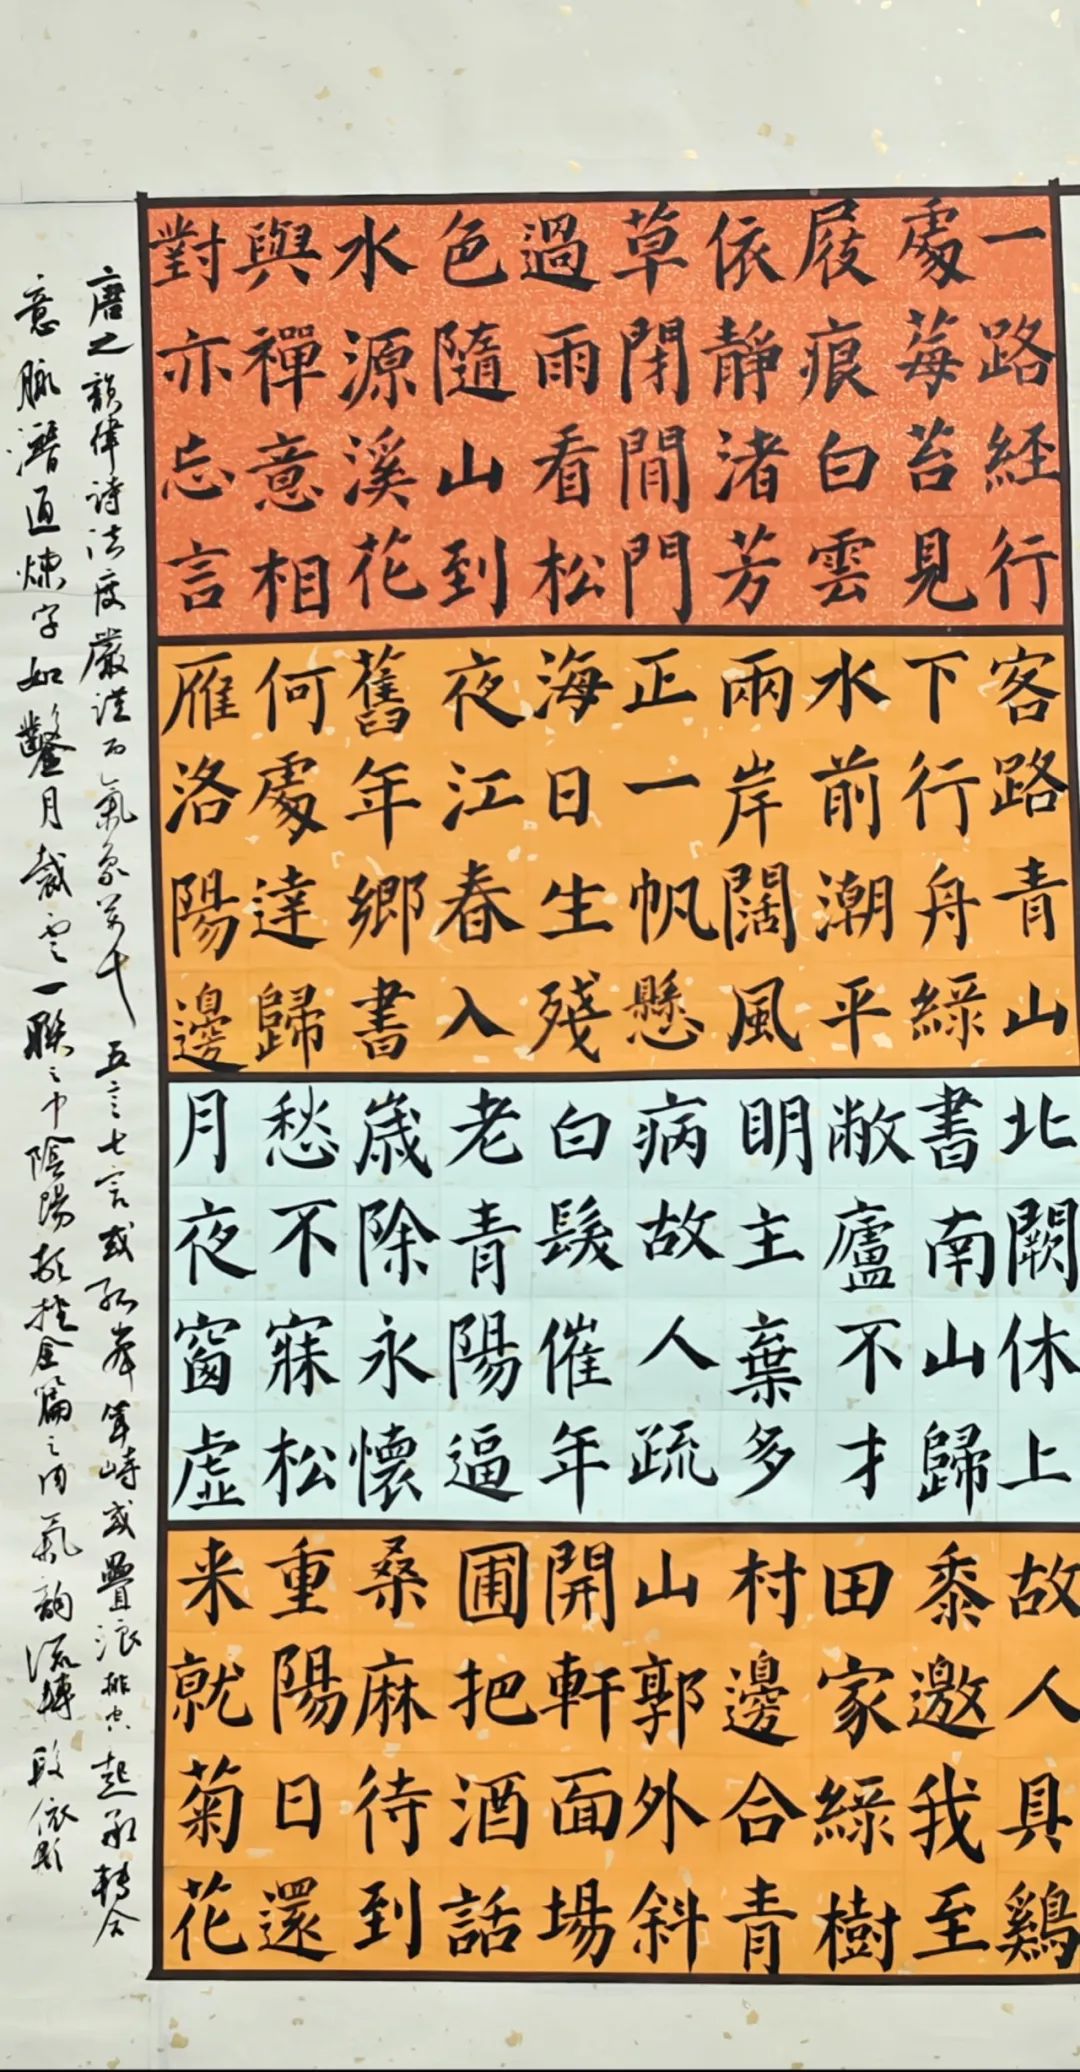 一路経行
處莓苔見
屐痕白雲
依靜渚芳
草閉閒門
過雨看松
色隨山到
水源溪花
與禪意相
對亦忘言
客路青山
下行舟綠
水前潮平
兩岸闊風
正一帆懸
海日生殘
夜江春入
舊年鄉書
何處達歸
雁洛陽邊
北闕休上
書南山歸
敝廬不才
明主棄多
病故人疏
白髮催年
老青陽逼
歲除永懷
愁不寐松
月夜窗虛
故人具鷄
黍邀我至
田家綠樹
村邊合青
山郭外斜
開軒面場
圃把酒話
桑麻待到
重陽日還
来就菊花
唐之韻律詩法度嚴謹而氣象萬千五言七言或孤峯聳峙或疊浪排空起承轉合
意脈潛通煉字如鑿月裁雲一聯之中陰陽全篇之內氣韻流轉